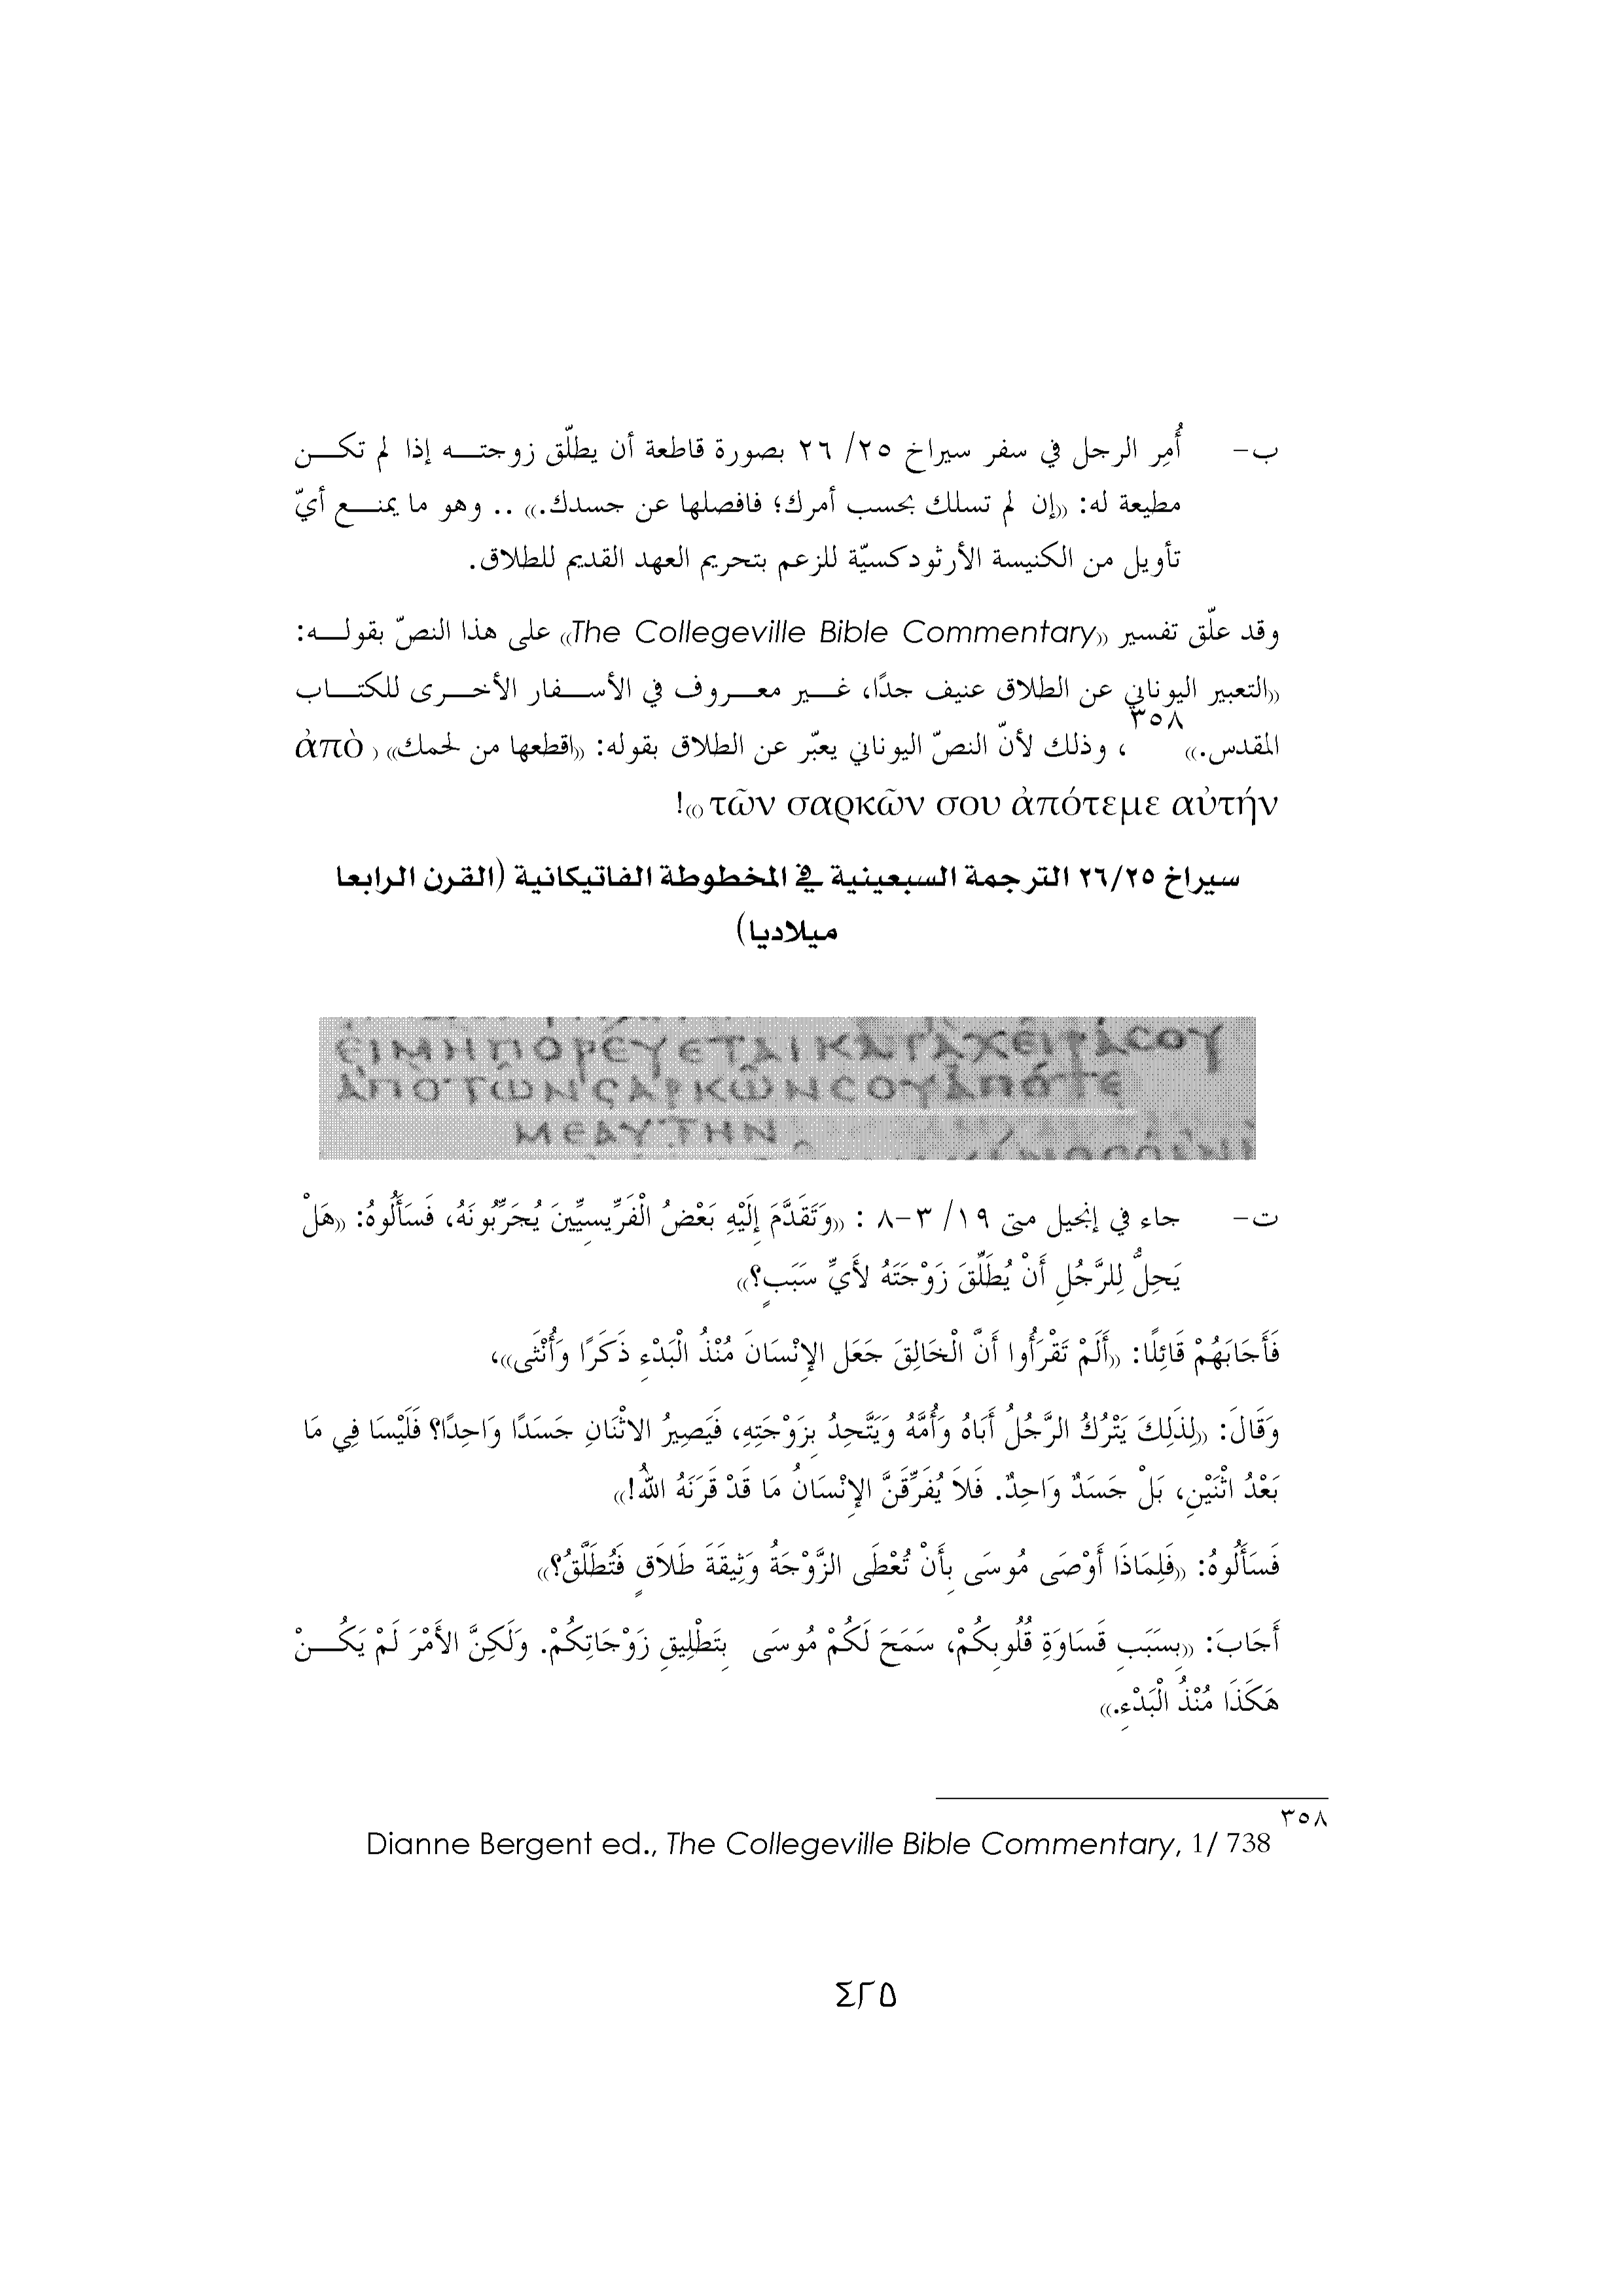 ب- أُمِر الرجل في سفر سيراخ ٢٥/ ٢٦ بصورة قاطعة أن يطلّق زوجتــه إذا لم تكــن
مطيعة له: «إن لم تسلك بحسب أمرك؛ فافصلها عن جسدك.» .. وهو ما يمنــع أيّ
تأويل من الكنيسة الأرثودكسيّة للزعم بتحريم العهد القديم للطلاق.
وقد علّق تفسير «The Collegeville Bible Commentary» على هذا النصّ بقولــه:
«التعبير اليوناني عن الطلاق عنيف جدًا، غــير معــروف في الأســفار الأخــرى للكتــاب
المقدس.»٣٥٨ ، وذلك لأنّ النصّ اليوناني يعبّر عن الطلاق بقوله: «اقطعها من لحمك» ( ἀπὸ
τῶν σαρκῶν σου ἀπότεμε αὐτήν)»!
سيراخ ٢٦/٢٥ الترجمة السبعينية في المخطوطة الفاتيكانية (القرن الرابعا
ميلاديا)
ΕΙΜΗΠΟΡΕΥΕΤΑΙΚΑΤΑΧΕΙΡΑCΟΥ
ΑΠΟΤΩΝCΑΡΚΩΝCΟΥΑΠΟΤΕ
ΜΕΑΥΤΗΝ
ت- جاء في إنجيل متى ١٩/ ٣-٨ : «وَتَقَدَّمَ إِلَيْهِ بَعْضُ الْفَرِّيسِيِّينَ يُجَرِّبُونَهُ، فَسَأَلُوهُ: «هَلْ
يَحِلُّ لِلرَّجُلِ أَنْ يُطَلِّقَ زَوْجَتَهُ لأَيِّ سَبَبٍ؟»
فَأَجَابَهُمْ قَائِلًا: «أَلَمْ تَقْرَأُوا أَنَّ الْخَالِقَ جَعَل الإِنْسَانَ مُنْذُ الْبَدْءِ ذَكَرًا وَأُنْثَى»،
وَقَالَ: «لِذَلِكَ يَتْرُكُ الرَّجُلُ أَبَاهُ وَأُمَّهُ وَيَتَّحِدُ بِزَوْجَتِهِ، فَيَصِيرُ الاثْنَانِ جَسَدًا وَاحِدًا؟ فَلَيْسَا فِي مَا
بَعْدُ اثْنَيْنِ، بَلْ جَسَدٌ وَاحِدٌ. فَلاَ يُفَرِّقَنَّ الإِنْسَانُ مَا قَدْ قَرَنَهُ اللهُ!»
فَسَأَلُوهُ: «فَلِمَاذَا أَوْصَى مُوسَى بِأَنْ تُعْطَى الزَّوْجَةُ وَثِيقَةَ طَلاَقٍ فَتُطَلَّقُ؟»
أَجَابَ: «بِسَبَبِ قَسَاوَةِ قُلُوبِكُمْ، سَمَحَ لَكُمْ مُوسَى بِتَطْلِيقِ زَوْجَاتِكُمْ. وَلَكِنَّ الأَمْرَ لَمْ يَكُــنْ
هَكَذَا مُنْذُ الْبَدْءِ.»
٣٥٨
Dianne Bergent ed., The Collegeville Bible Commentary, 1/ 738
٤٢٥